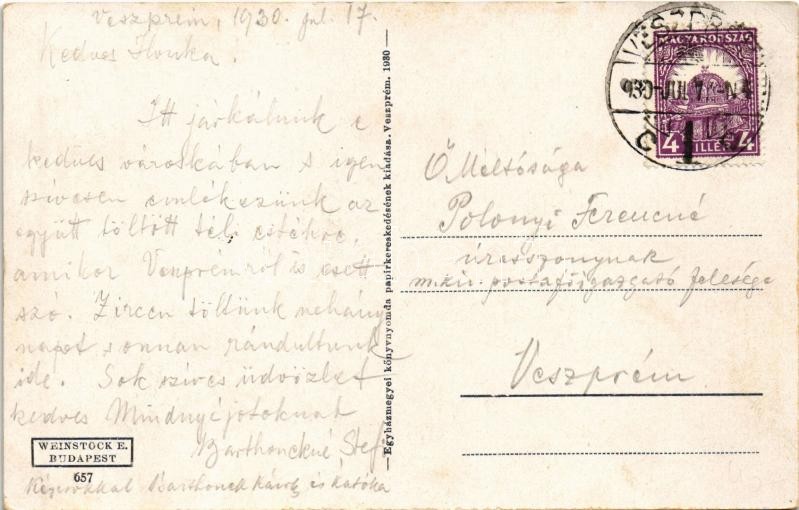 Veszprém, 1930. júl. 17.
Kedves Ilonka.
Itt járkálunk e
kedves városkában s igen
szívesen emlékezünk az
együtt töltött téli estékre,
amikor Veszprémről is esett
szó. Zircen töltünk néhány
napot s onnan rándultunk
ide. Sok szíves üdvözlet
kedves Mindnyájotoknak
Barthonekné Stefi
Barthonek Károly és Katóka
WEINSTOCK E.
BUDAPEST
657
—Egyházmegyei könyvnyomda papírkereskedésének kiadása. Veszprém. 1930—
MAGYARORSZÁG
4 FILLÉR 4
VESZPRÉM
930 JUL 17
Ő Méltósága
Polonyi Ferencné
úrasszonynak
m. kir. postafőigazgató felesége
Veszprém